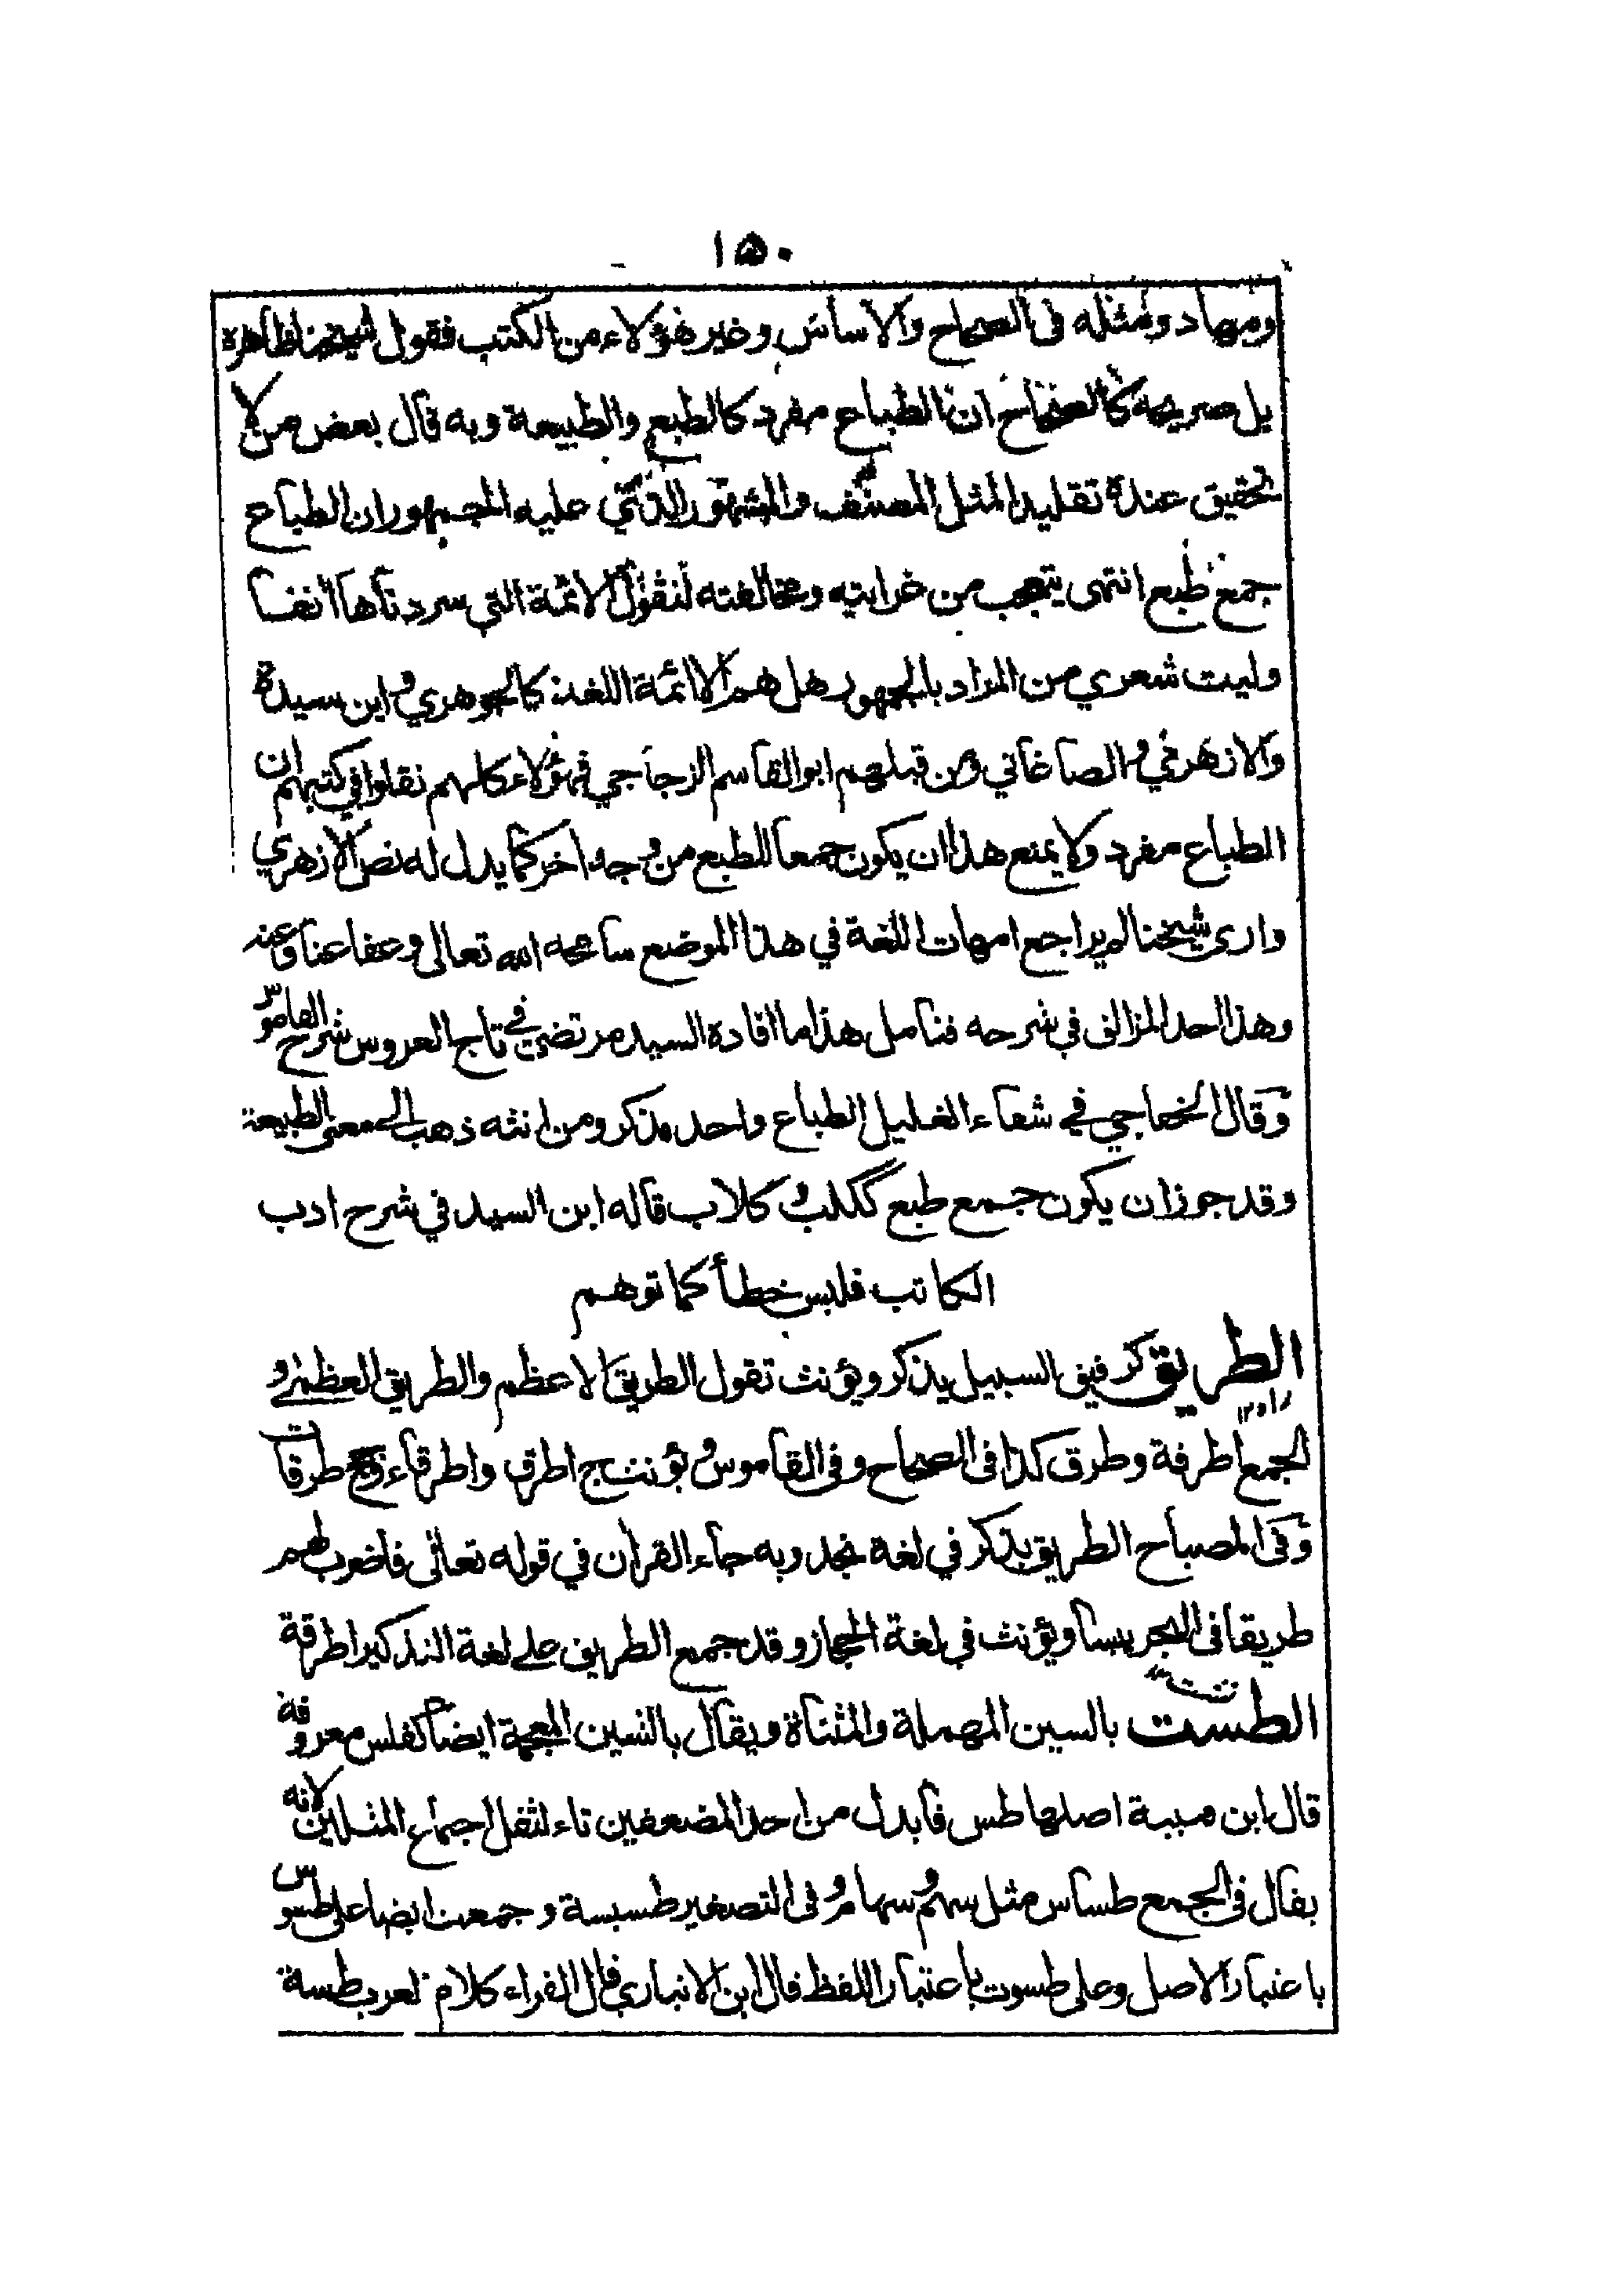 ١٥٠
ومهاد ومثله فى الصحاح والاساس وغير هؤلاء من الكتب فقول شيخنا ظاهره
بل صريحه كالصحاح ان الطباع مفرد كالطبع والطبيعة وبه قال بعض من لا
تحقيق عنده تقليدا لمثل المصنف والمشهور الذي عليه الجمهور ان الطباع
جمع طبع انتهى يتعجب من غرابته ومخالفته لنقول الائمة التي سردناها انفا
وليت شعري من المراد بالجمهور هل هم الا ائمة اللغة كالجوهري وابن سيدة
والازهري والصاغاني ومن قبلهم ابو القاسم الزجاجي فهؤلاء كلهم نقلوا في كتبهم ان
الطباع مفرد ولا يمنع هذا ان يكون جمعا للطبع من وجه اخر كما يدل له نص الازهري
وارى شيخنا لم يراجع امهات اللغة في هذا الموضع سامحه الله تعالى وعفا عنا وعنه
وهذا احد المزالق في شرحه فتامل هذا ما افاده السيد مرتضى في تاج العروس شرح القاموس
وقال الخفاجي في شفاء الغليل الطباع واحد مذكر ومن انثه ذهب الى معنى الطبيعة
وقد جوز ان يكون جمع طبع ككلب وكلاب قاله ابن السيد في شرح ادب
الكاتب فليس خطأ كما توهم
الطريق كرفيق السبيل يذكر ويؤنث تقول الطريق الاعظم والطريق العظمى و
الجمع اطرقة وطرق كذا فى الصحاح وفى القاموس ويؤنث ج اطرق واطرقاء وجج طرقات
وفى المصباح الطريق يذكر في لغة نجد وبه جاء القران في قوله تعالى فاضرب لهم
طريقا فى البحر يبسا ويؤنث في لغة الحجاز وقد جمع الطريق على لغة التذكير اطرقة
الطست بالسين المهملة والمثناة ويقال بالشين المعجمة ايضا كفلس معروفة
قال ابن قتيبة اصلها طس فابدل من احد المضعفين تاء لثقل اجماع المثلين لانه
يقال فى الجمع طساس مثل سهم وسهام وفى التصغير طسيسة وجمعت ايضا على طسوس
باعتبار الاصل وعلى طسوت باعتبار اللفظ قال ابن الانباري قال الفراء كلام العرب طسة